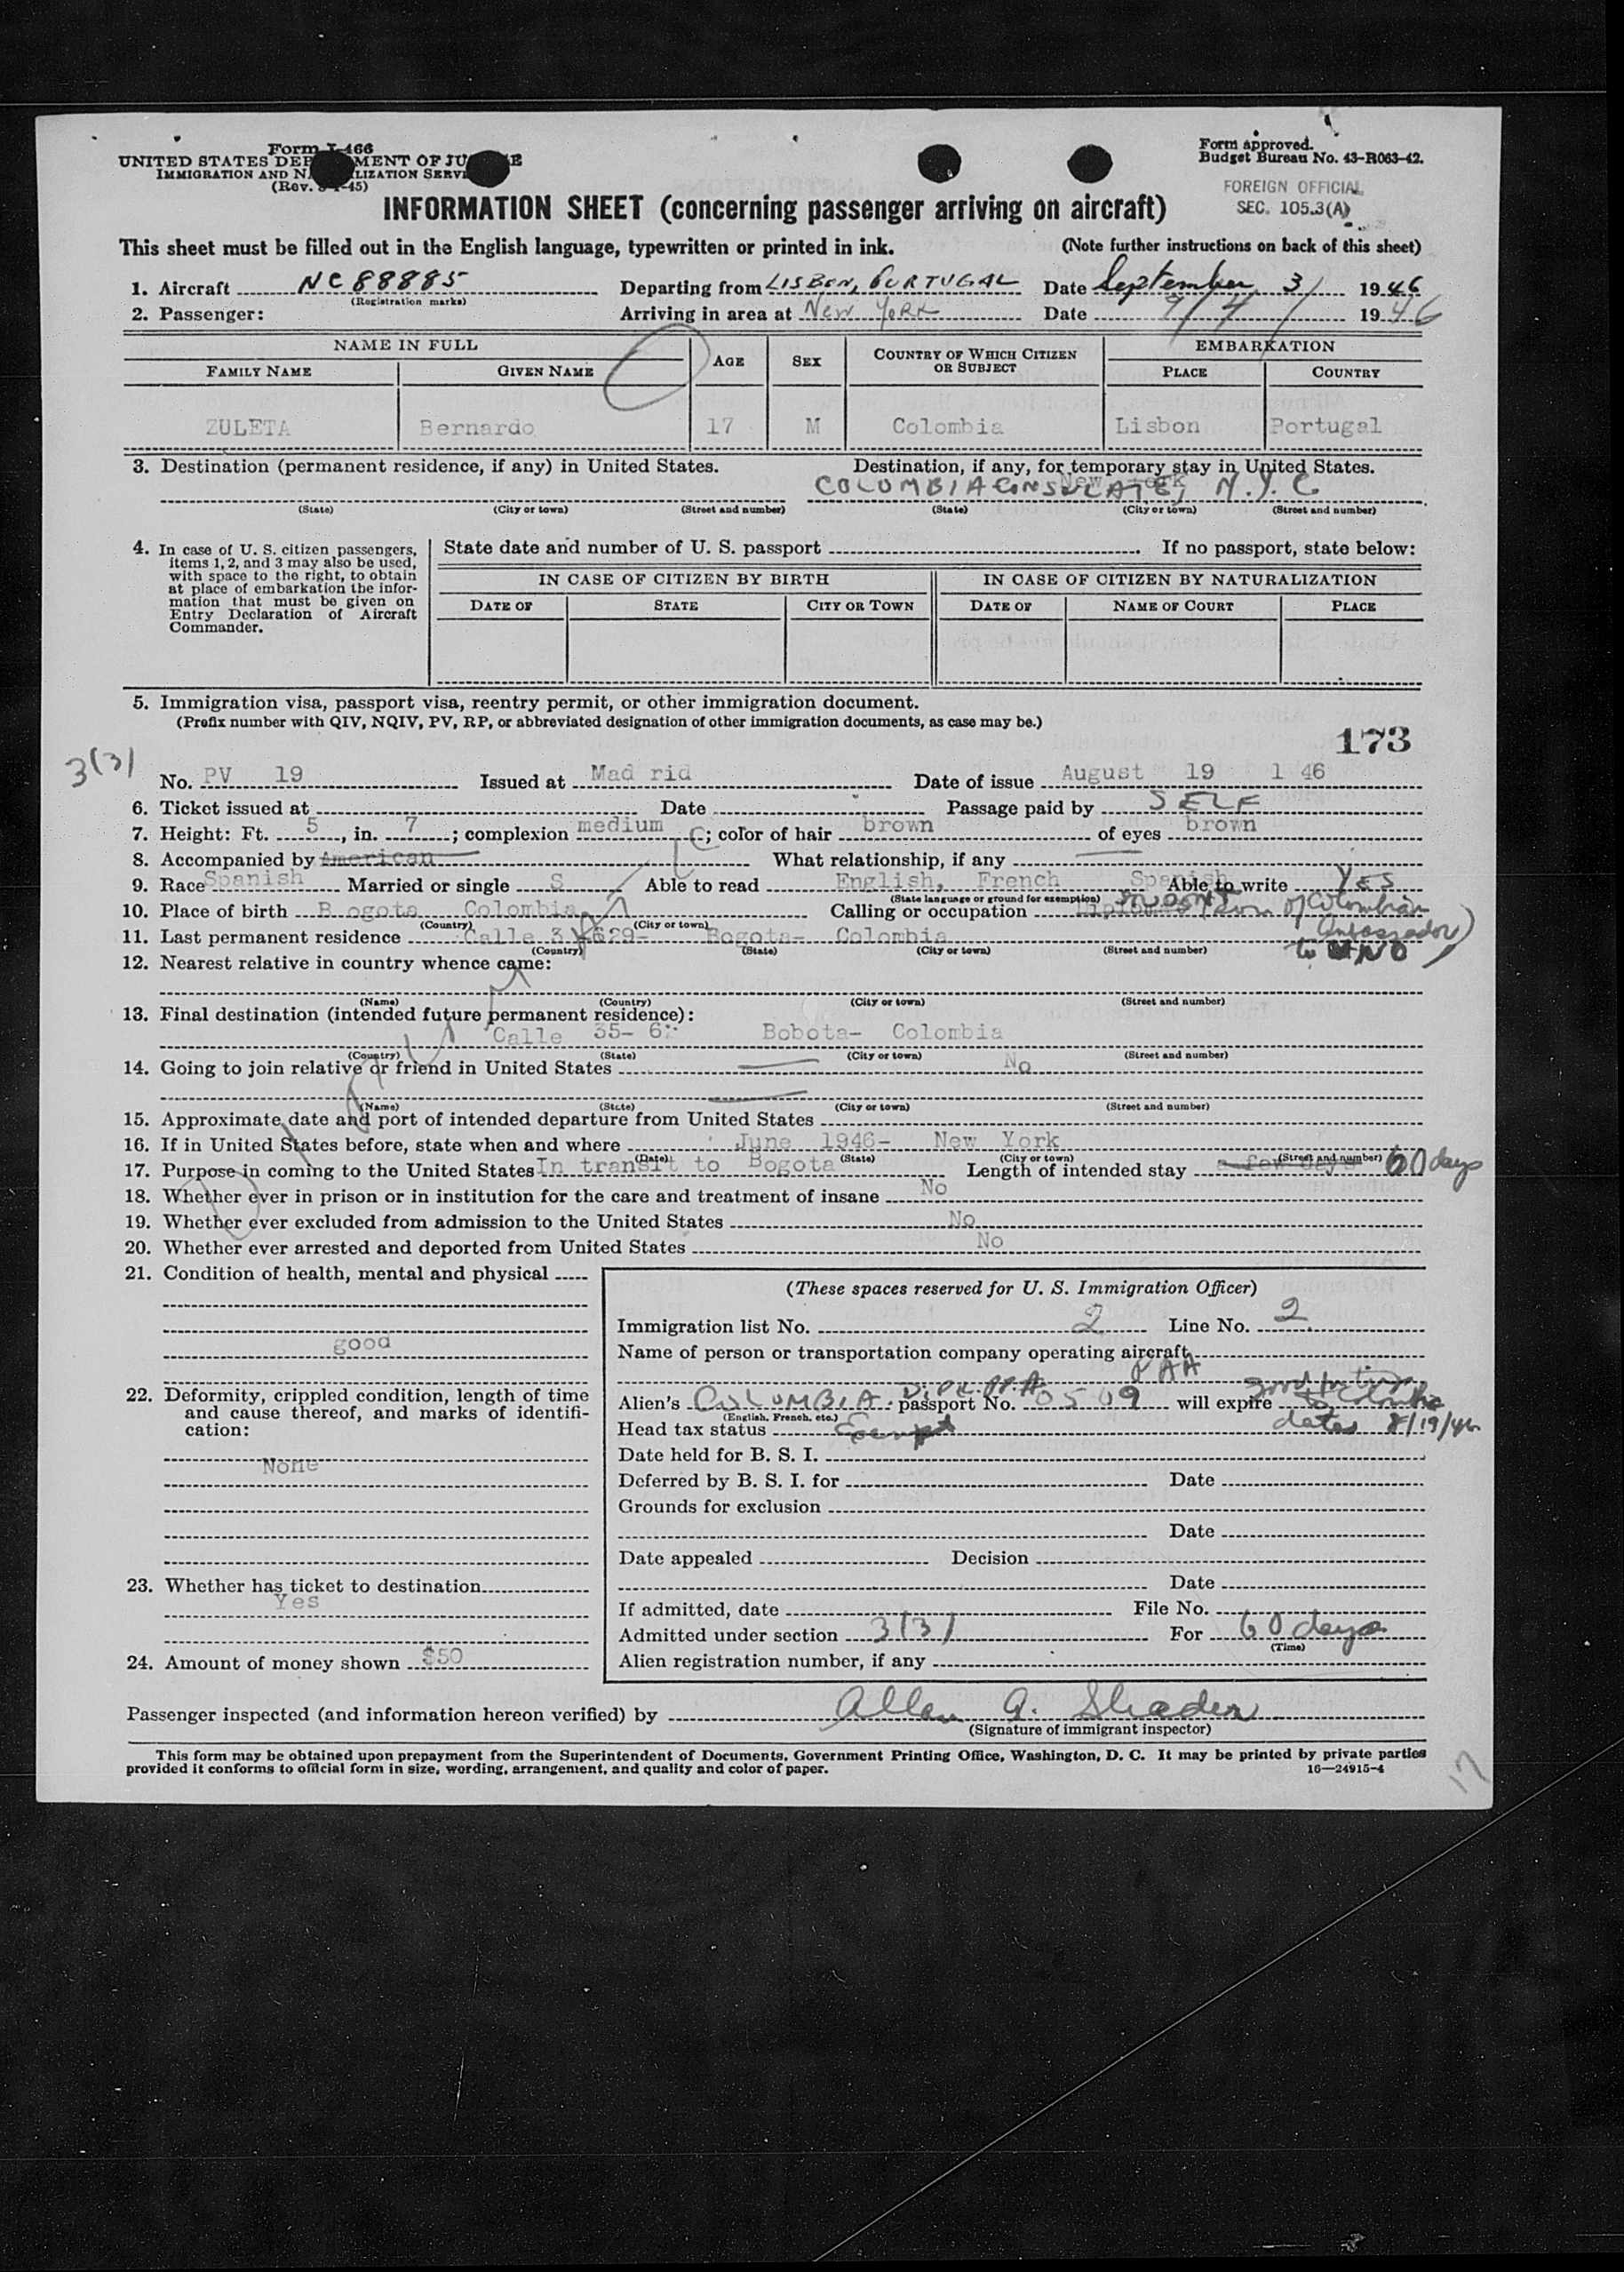 Form I-466
UNITED STATES DEP MENT OF JU E
IMMIGRATION AND N LIZATION SERVI
(Rev. -45)
Form approved.
Budget Bureau No. 43-R063-42.
FOREIGN OFFICIAL
SEC. 105.3(A)
INFORMATION SHEET (concerning passenger arriving on aircraft)
This sheet must be filled out in the English language, typewritten or printed in ink. (Note further instructions on back of this sheet)
1. Aircraft NC 88885 Departing from LISBON, PORTUGAL Date September 3/ 1946
(Registration marks)
2. Passenger: Arriving in area at New York Date 9/4/ 1946
NAME IN FULL AGE SEX COUNTRY OF WHICH CITIZEN OR SUBJECT EMBARKATION
FAMILY NAME GIVEN NAME PLACE COUNTRY
ZULETA Bernardo 17 M Colombia Lisbon Portugal
3. Destination (permanent residence, if any) in United States. Destination, if any, for temporary stay in United States.
New York
COLOMBIA CONSULATE, N.Y.C
(State) (City or town) (Street and number) (State) (City or town) (Street and number)
4. In case of U. S. citizen passengers, items 1, 2, and 3 may also be used, with space to the right, to obtain at place of embarkation the information that must be given on Entry Declaration of Aircraft Commander.
State date and number of U. S. passport If no passport, state below:
IN CASE OF CITIZEN BY BIRTH IN CASE OF CITIZEN BY NATURALIZATION
DATE OF STATE CITY OR TOWN DATE OF NAME OF COURT PLACE
5. Immigration visa, passport visa, reentry permit, or other immigration document.
(Prefix number with QIV, NQIV, PV, RP, or abbreviated designation of other immigration documents, as case may be.)
173
3(3)
No. PV 19 Issued at Mad rid Date of issue August 19 1 46
6. Ticket issued at Date Passage paid by SELF
7. Height: Ft. 5, in. 7; complexion medium; color of hair brown of eyes brown
8. Accompanied by American What relationship, if any
9. Race Spanish Married or single S Able to read English, French Spanish Able to write YES
(State language or ground for exemption)
10. Place of birth B ogota Colombia Calling or occupation STUDENT (son of Colombian Ambassador) to UNO
(Country) (City or town)
11. Last permanent residence Calle 629- Bogota- Colombia
(Country) (State) (City or town) (Street and number)
12. Nearest relative in country whence came:
(Name) (Country) (City or town) (Street and number)
13. Final destination (intended future permanent residence):
Calle 35- 6 Bobota- Colombia
(Country) (State) (City or town) (Street and number)
14. Going to join relative or friend in United States No
(Name) (State) (City or town) (Street and number)
15. Approximate date and port of intended departure from United States
16. If in United States before, state when and where June 1946- New York
(Date) (State) (City or town) (Street and number)
17. Purpose in coming to the United States In transit to Bogota Length of intended stay a few days 60 days
18. Whether ever in prison or in institution for the care and treatment of insane No
19. Whether ever excluded from admission to the United States No
20. Whether ever arrested and deported from United States No
21. Condition of health, mental and physical
good
22. Deformity, crippled condition, length of time and cause thereof, and marks of identification:
None
23. Whether has ticket to destination
Yes
24. Amount of money shown $50
(These spaces reserved for U. S. Immigration Officer)
Immigration list No. 2 Line No. 2
Name of person or transportation company operating aircraft
PAA
Alien's COLOMBIA passport No. 0509 will expire good for trip to Colombia
(English, French, etc.)
dated 8/19/46
Head tax status Exempt
Date held for B. S. I.
Deferred by B. S. I. for Date
Grounds for exclusion
Date
Date appealed Decision
Date
If admitted, date File No.
Admitted under section 3(3) For 60 days
(Time)
Alien registration number, if any
Passenger inspected (and information hereon verified) by Allan A. Shader
(Signature of immigrant inspector)
This form may be obtained upon prepayment from the Superintendent of Documents, Government Printing Office, Washington, D. C. It may be printed by private parties
provided it conforms to official form in size, wording, arrangement, and quality and color of paper. 16—24915-4
17